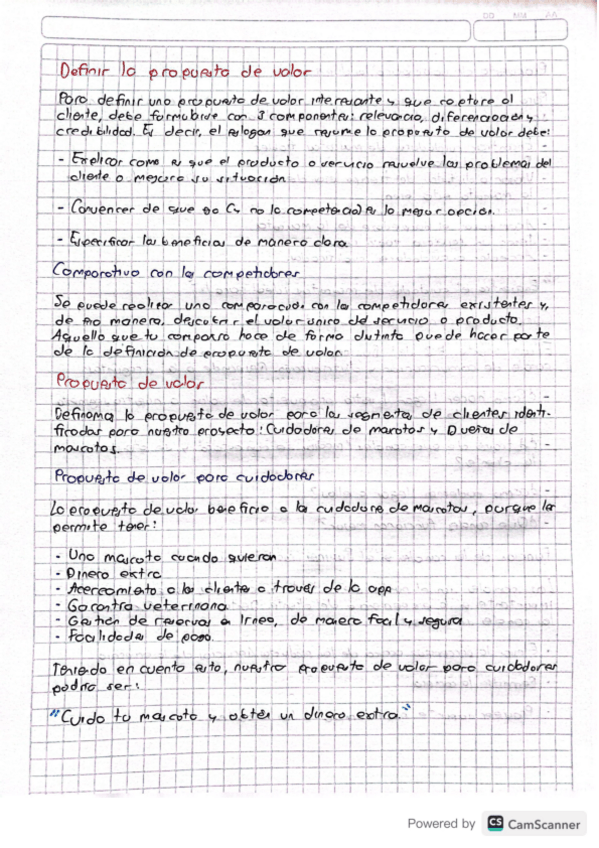 Definir la propuesta de valor
Para definir una propuesta de valor interesante y que capture al
cliente, debe formularse con 3 componentes: relevancia, diferenciación y
credibilidad. Es decir, el eslogan que resume la propuesta de valor debe:
- Explicar como es que el producto o servicio resuelve los problemas del
cliente o mejora su situación.
- Convencer de que no la competencia) es la mejor opción.
- Especificar los beneficios de manera clara
Comparativa con los competidores
Se puede realizar una comparación con los competidores existentes y,
de esa manera, descubrir el valor único del servicio o producto.
Aquello que tu compañía hace de forma distinta puede hacer parte
de la definición de propuesta de valor.
Propuesta de valor
Definamos la propuesta de valor para los segmentos de clientes identi-
ficados para nuestro proyecto: Cuidadores de mascotas y Dueños de
mascotas.
Propuesta de valor para cuidadores
La propuesta de valor beneficia a los cuidadores de mascotas, porque les
permite tener:
- Una mascota cuando quieran
- Dinero extra
- Acercamiento a los clientes a través de la app
- Garantía veterinaria
- Gestión de reservas en línea, de manera fácil y segura
- Facilidades de pago
Teniendo en cuenta esto, nuestra propuesta de valor para cuidadores
podría ser:
"Cuida tu mascota y obtén un dinero extra."
Powered by CS CamScanner